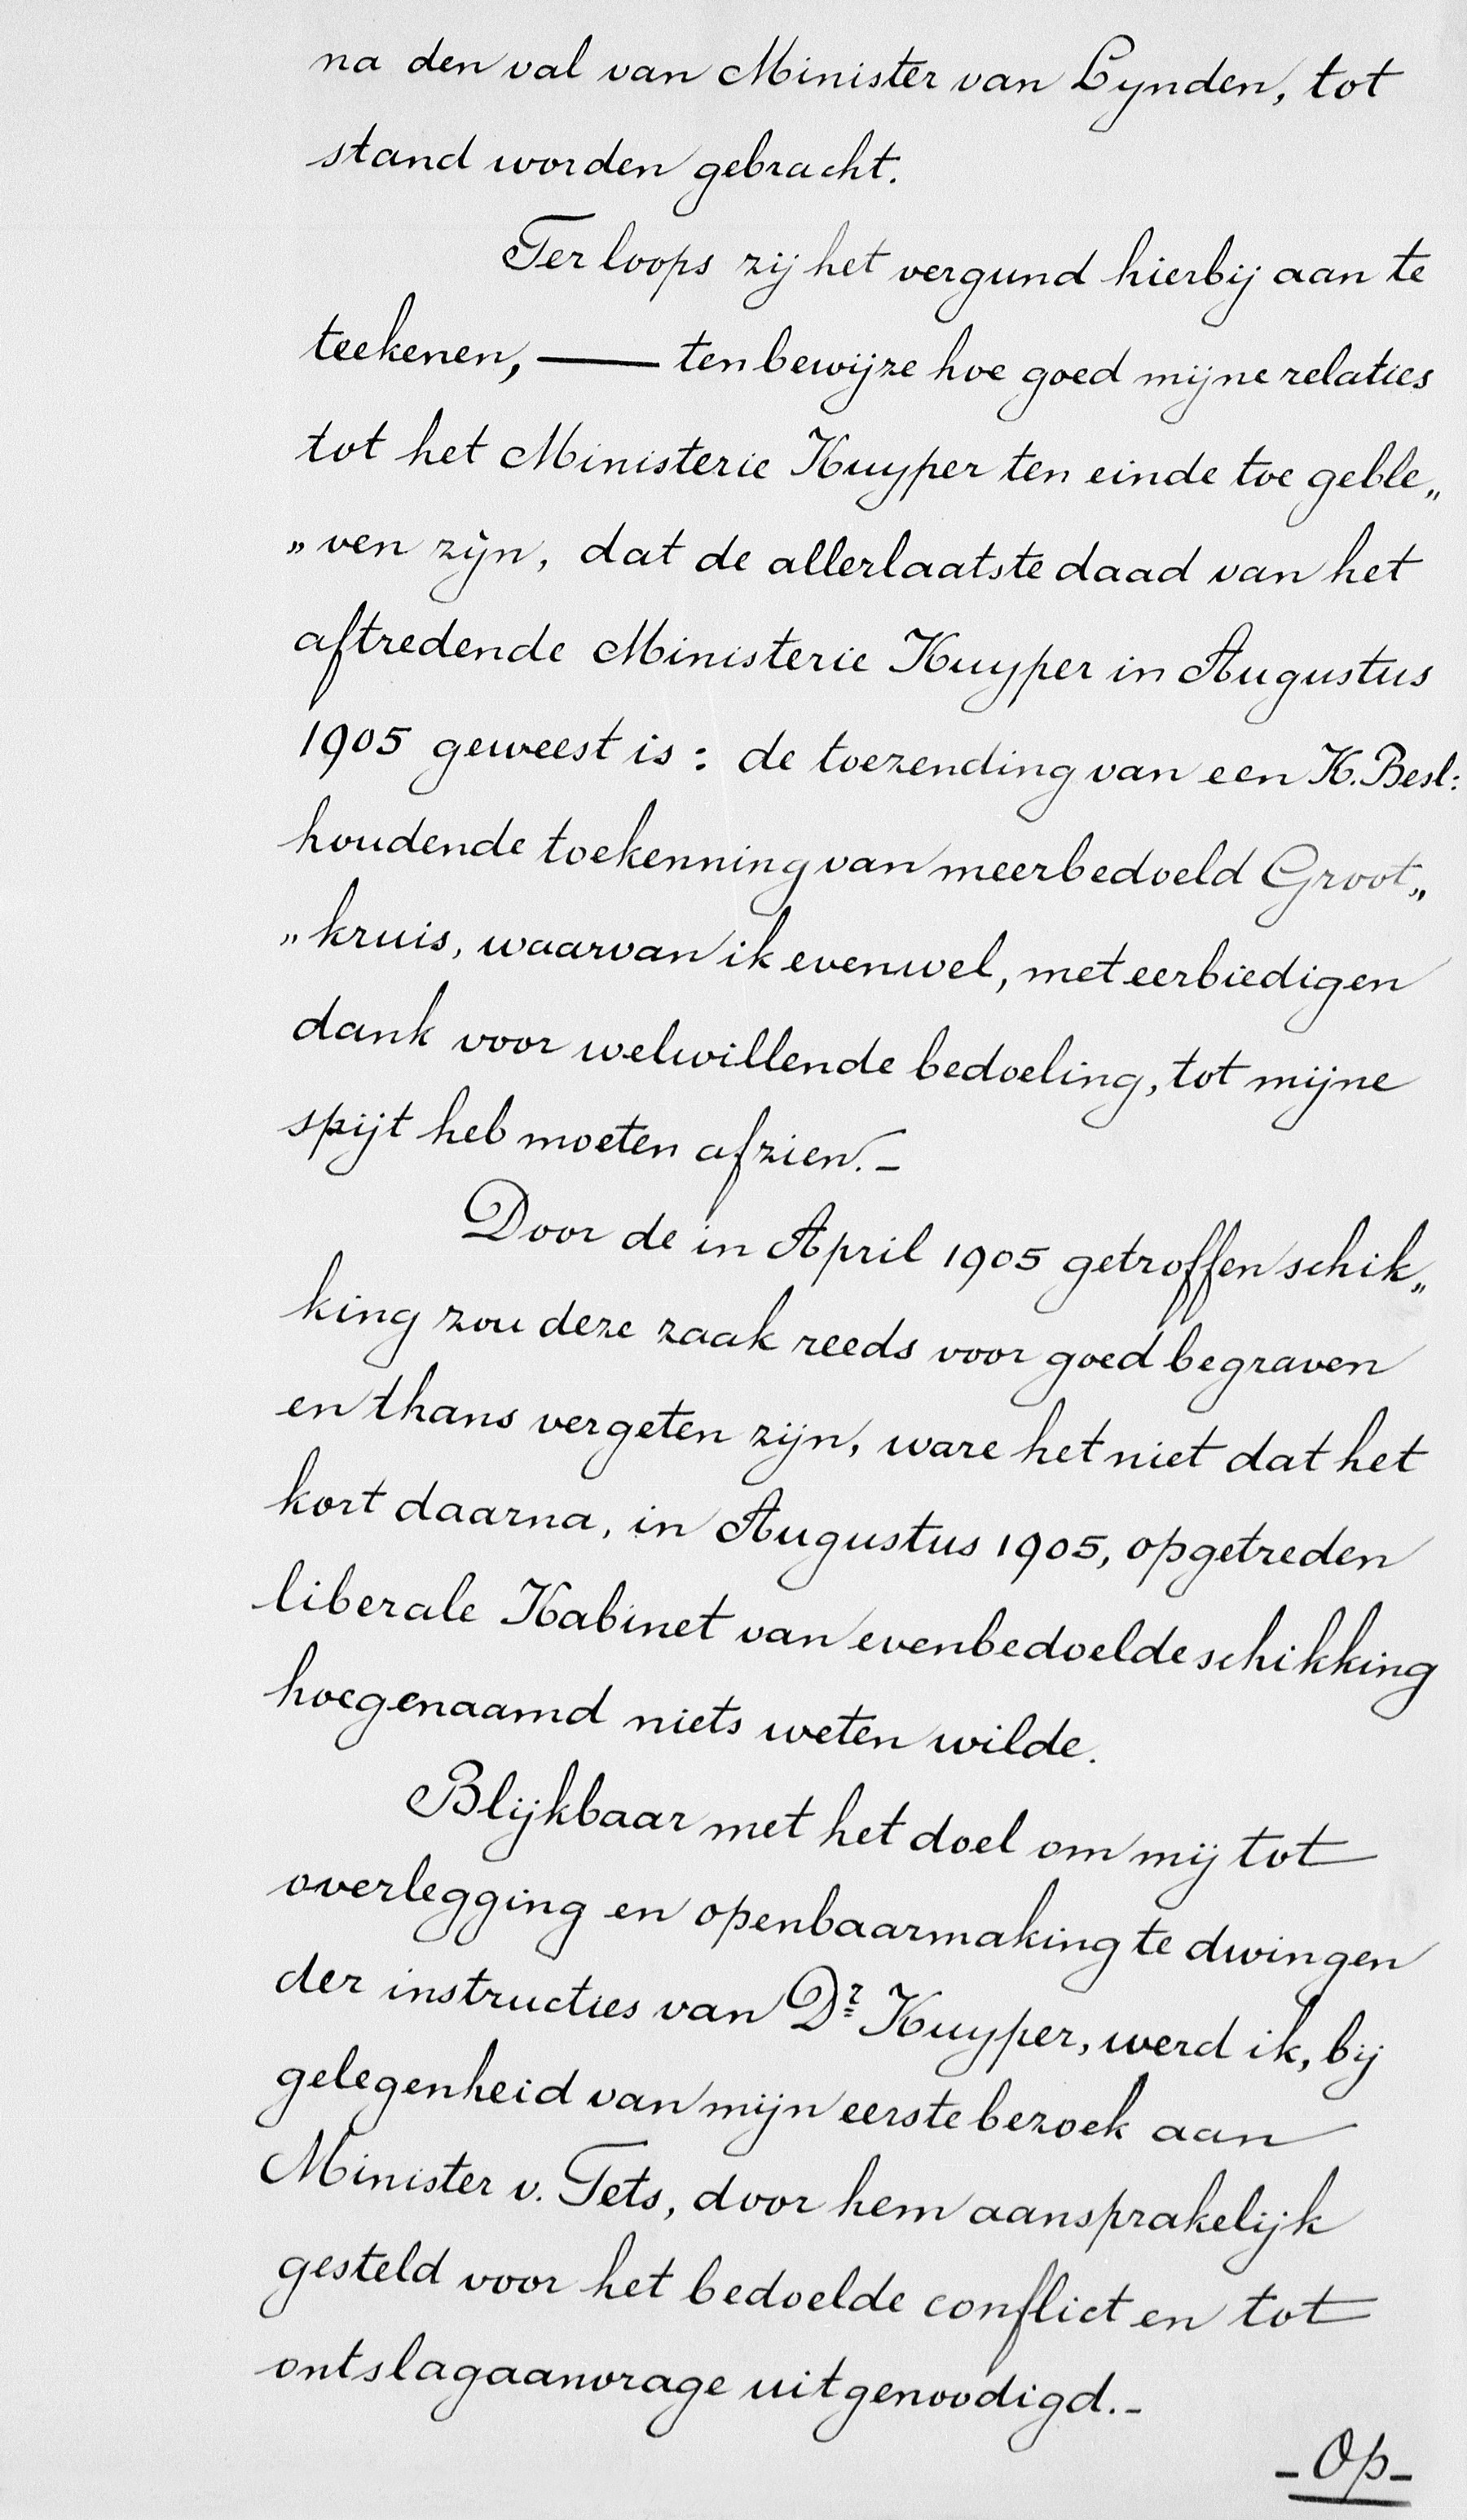 na den val van Minister van Lynden, tot
stand worden gebracht.
Ter loops zij het vergund hierbij aan te
teekenen, — ten bewijze hoe goed mijne relaties
tot het Ministerie Kuyper ten einde toe geble„
„ven zijn, dat de allerlaatste daad van het
aftredende Ministerie Kuyper in Augustus
1905 geweest is: de toezending van een K. Besl:
houdende toekenning van meerbedoeld Groot„
„kruis, waarvan ik evenwel, met eerbiedigen
dank voor welwillende bedoeling, tot mijne
spijt heb moeten afzien. –
Door de in April 1905 getroffen schik„
king zou deze zaak reeds voor goed begraven
en thans vergeten zijn, ware het niet dat het
kort daarna, in Augustus 1905, opgetreden
liberale Kabinet van evenbedoelde schikking
hoegenaamd niets weten wilde.
Blijkbaar met het doel om mij tot
overlegging en openbaarmaking te dwingen
der instructies van Dr Kuyper, werd ik, bij
gelegenheid van mijn eerste bezoek aan
Minister v. Tets, door hem aansprakelijk
gesteld voor het bedoelde conflict en tot
ontslagaanvrage uitgenoodigd. –
– Op –